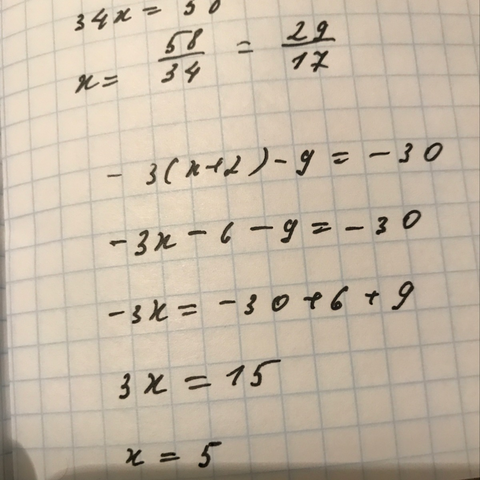 34x = 58
x = 58/34 = 29/17
- 3(x+2) - 9 = -30
-3x - 6 - 9 = -30
-3x = -30 + 6 + 9
3x = 15
x = 5